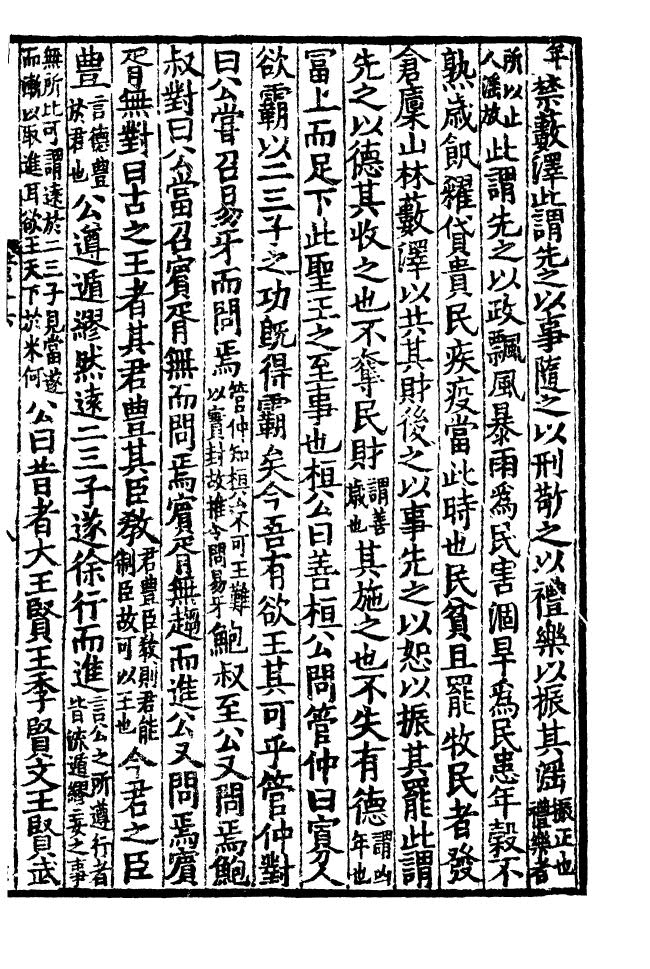 年禁藪澤此謂先之以事隨之以刑敬之以禮樂以振其滛振正也禮樂者
所以止人滛放此謂先之以政飄風暴雨爲民害涸旱爲民患年穀不
熟歲飢糴貸貴民疾疫當此時也民貧且罷牧民者發
倉廩山林藪澤以共其財後之以事先之以恕以振其罷此謂
先之以德其收之也不奪民財謂善歲也其施之也不失有德謂凶年也
冨上而足下此聖王之至事也桓公曰善桓公問管仲曰寡人
欲霸以二三子之功旣得霸矣今吾有欲王其可乎管仲對
曰公甞召易牙而問焉管仲知桓公不可王難以實封故推令問易牙鮑叔至公又問焉鮑
叔對曰公當召賔胥無而問焉賔胥無趨而進公又問焉賔
胥無對曰古之王者其君豊其臣敎君豊臣敎則君能制臣故可以王也今君之臣
豊言德豊於君也公遵遁繆然遠二三子遂徐行而進言公之所遵行者皆流遁繆妄之事
無所比可謂遠於二三子見當遂而漸以取進耳欲王天下於米何公曰昔者大王賢王季賢文王賢武